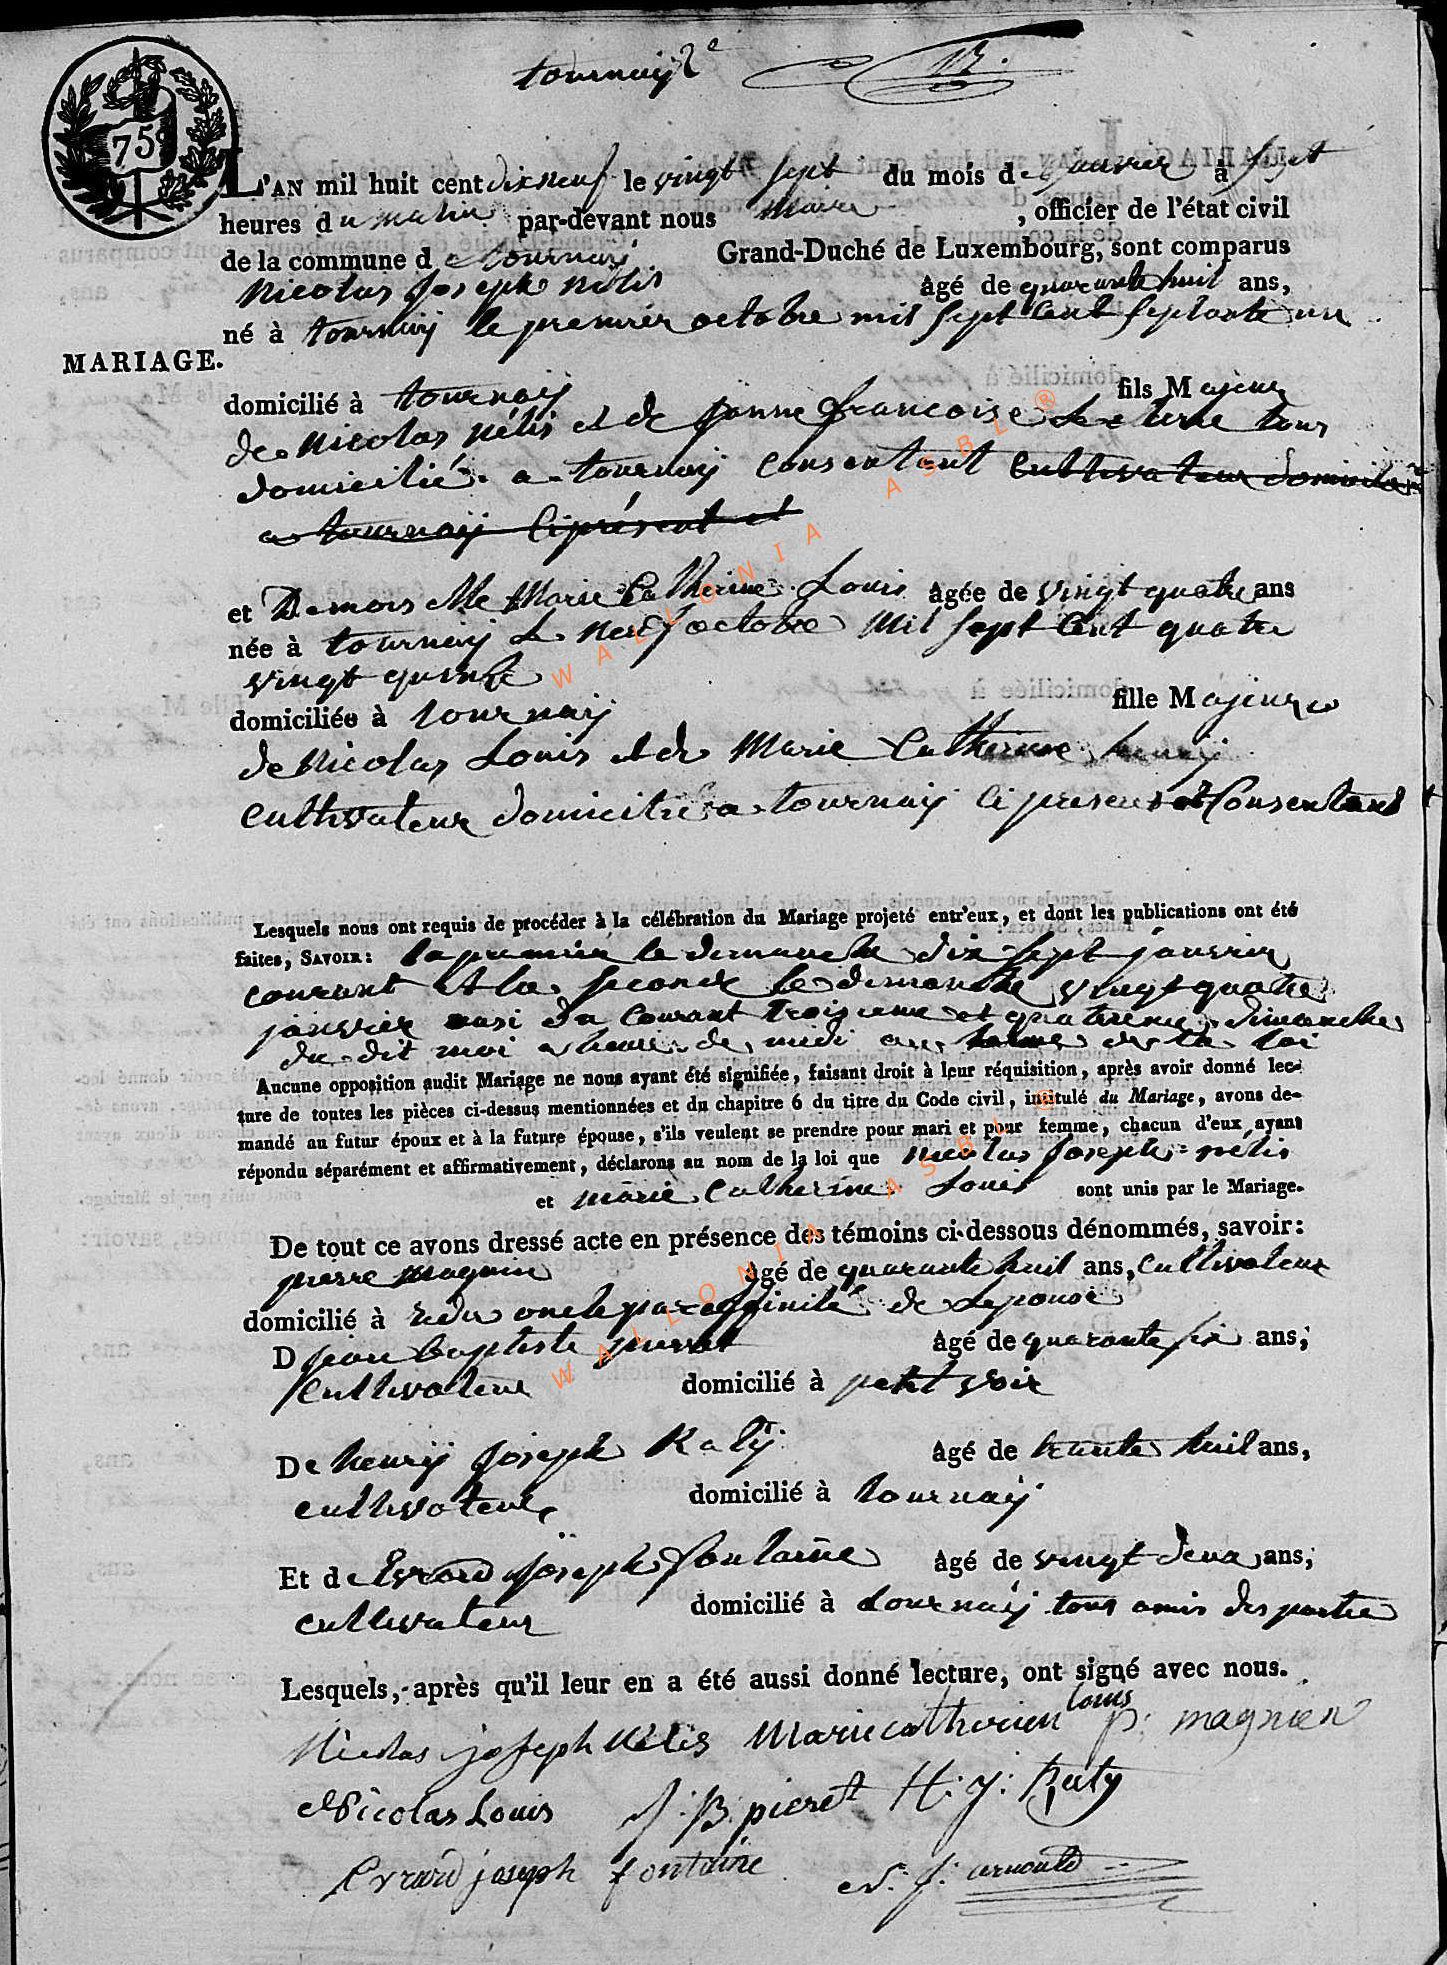 tournay 2e
75c
L'AN mil huit cent dix neuf le vingt sept du mois de janvier à sept
heures du matin par-devant nous maire , officier de l'état civil
de la commune de tournay Grand-Duché de Luxembourg, sont comparus
Nicolas Joseph nélis âgé de quarante huit ans,
né à tournay le premier octobre mil sept cent septante un
MARIAGE.
domicilié à tournay fils Majeur
de Nicolas nélis et de jeanne francoise tous
domicilié a tournay consentant cultivateur domicilié
a tournay ci présent et
et Demoiselle Marie Catherine Louis âgée de vingt quatre ans
née à tournay Le neuf octobre Mil sept Cent quatre
vingt quinze
domiciliée à tournay fille Majeure
de Nicolas Louis et de Marie Catherine henry
cultivateur domicilié a tournay ci present et Consentant
Lesquels nous ont requis de procéder à la célébration du Mariage projeté entr'eux, et dont les publications ont été
faites, SAVOIR: la premier le dimanche dix sept janvier
courant et la seconde le dimanche vingt quatre
janvier ausi du Courant troisieme et quatrieme dimanche
du dit moi a heure de midi au de la loi
Aucune opposition audit Mariage ne nous ayant été signifiée, faisant droit à leur réquisition, après avoir donné lec-
ture de toutes les pièces ci-dessus mentionnées et du chapitre 6 du titre du Code civil, intitulé du Mariage, avons de-
mandé au futur époux et à la future épouse, s'ils veulent se prendre pour mari et pour femme, chacun d'eux ayant
répondu séparément et affirmativement, déclarons au nom de la loi que nicolas Joseph nélis
et marie Catherine Louis sont unis par le Mariage.
De tout ce avons dressé acte en présence des témoins ci-dessous dénommés, savoir:
pierre magnien âgé de quarante huit ans, cultivateur
domicilié à redu oncle par affinité de Lepouse
D jean baptiste pierret âgé de quarante six ans,
cultivateur domicilié à petit voir
De henry joseph Raty âgé de trente huit ans,
cultivateur domicilié à tournay
Et de Evrard joseph fontaine âgé de vingt deux ans,
cultivateur domicilié à tournay tous amis des partie
Lesquels, après qu'il leur en a été aussi donné lecture, ont signé avec nous.
Nicolas joseph Nélis Marie catherien Louis p: magnien
Nicolas Louis J: B: pieret H: j: Raty
Evrard joseph fontaine N: j: arnould
WALLONIA ASBL ®
WALLONIA ASBL ®